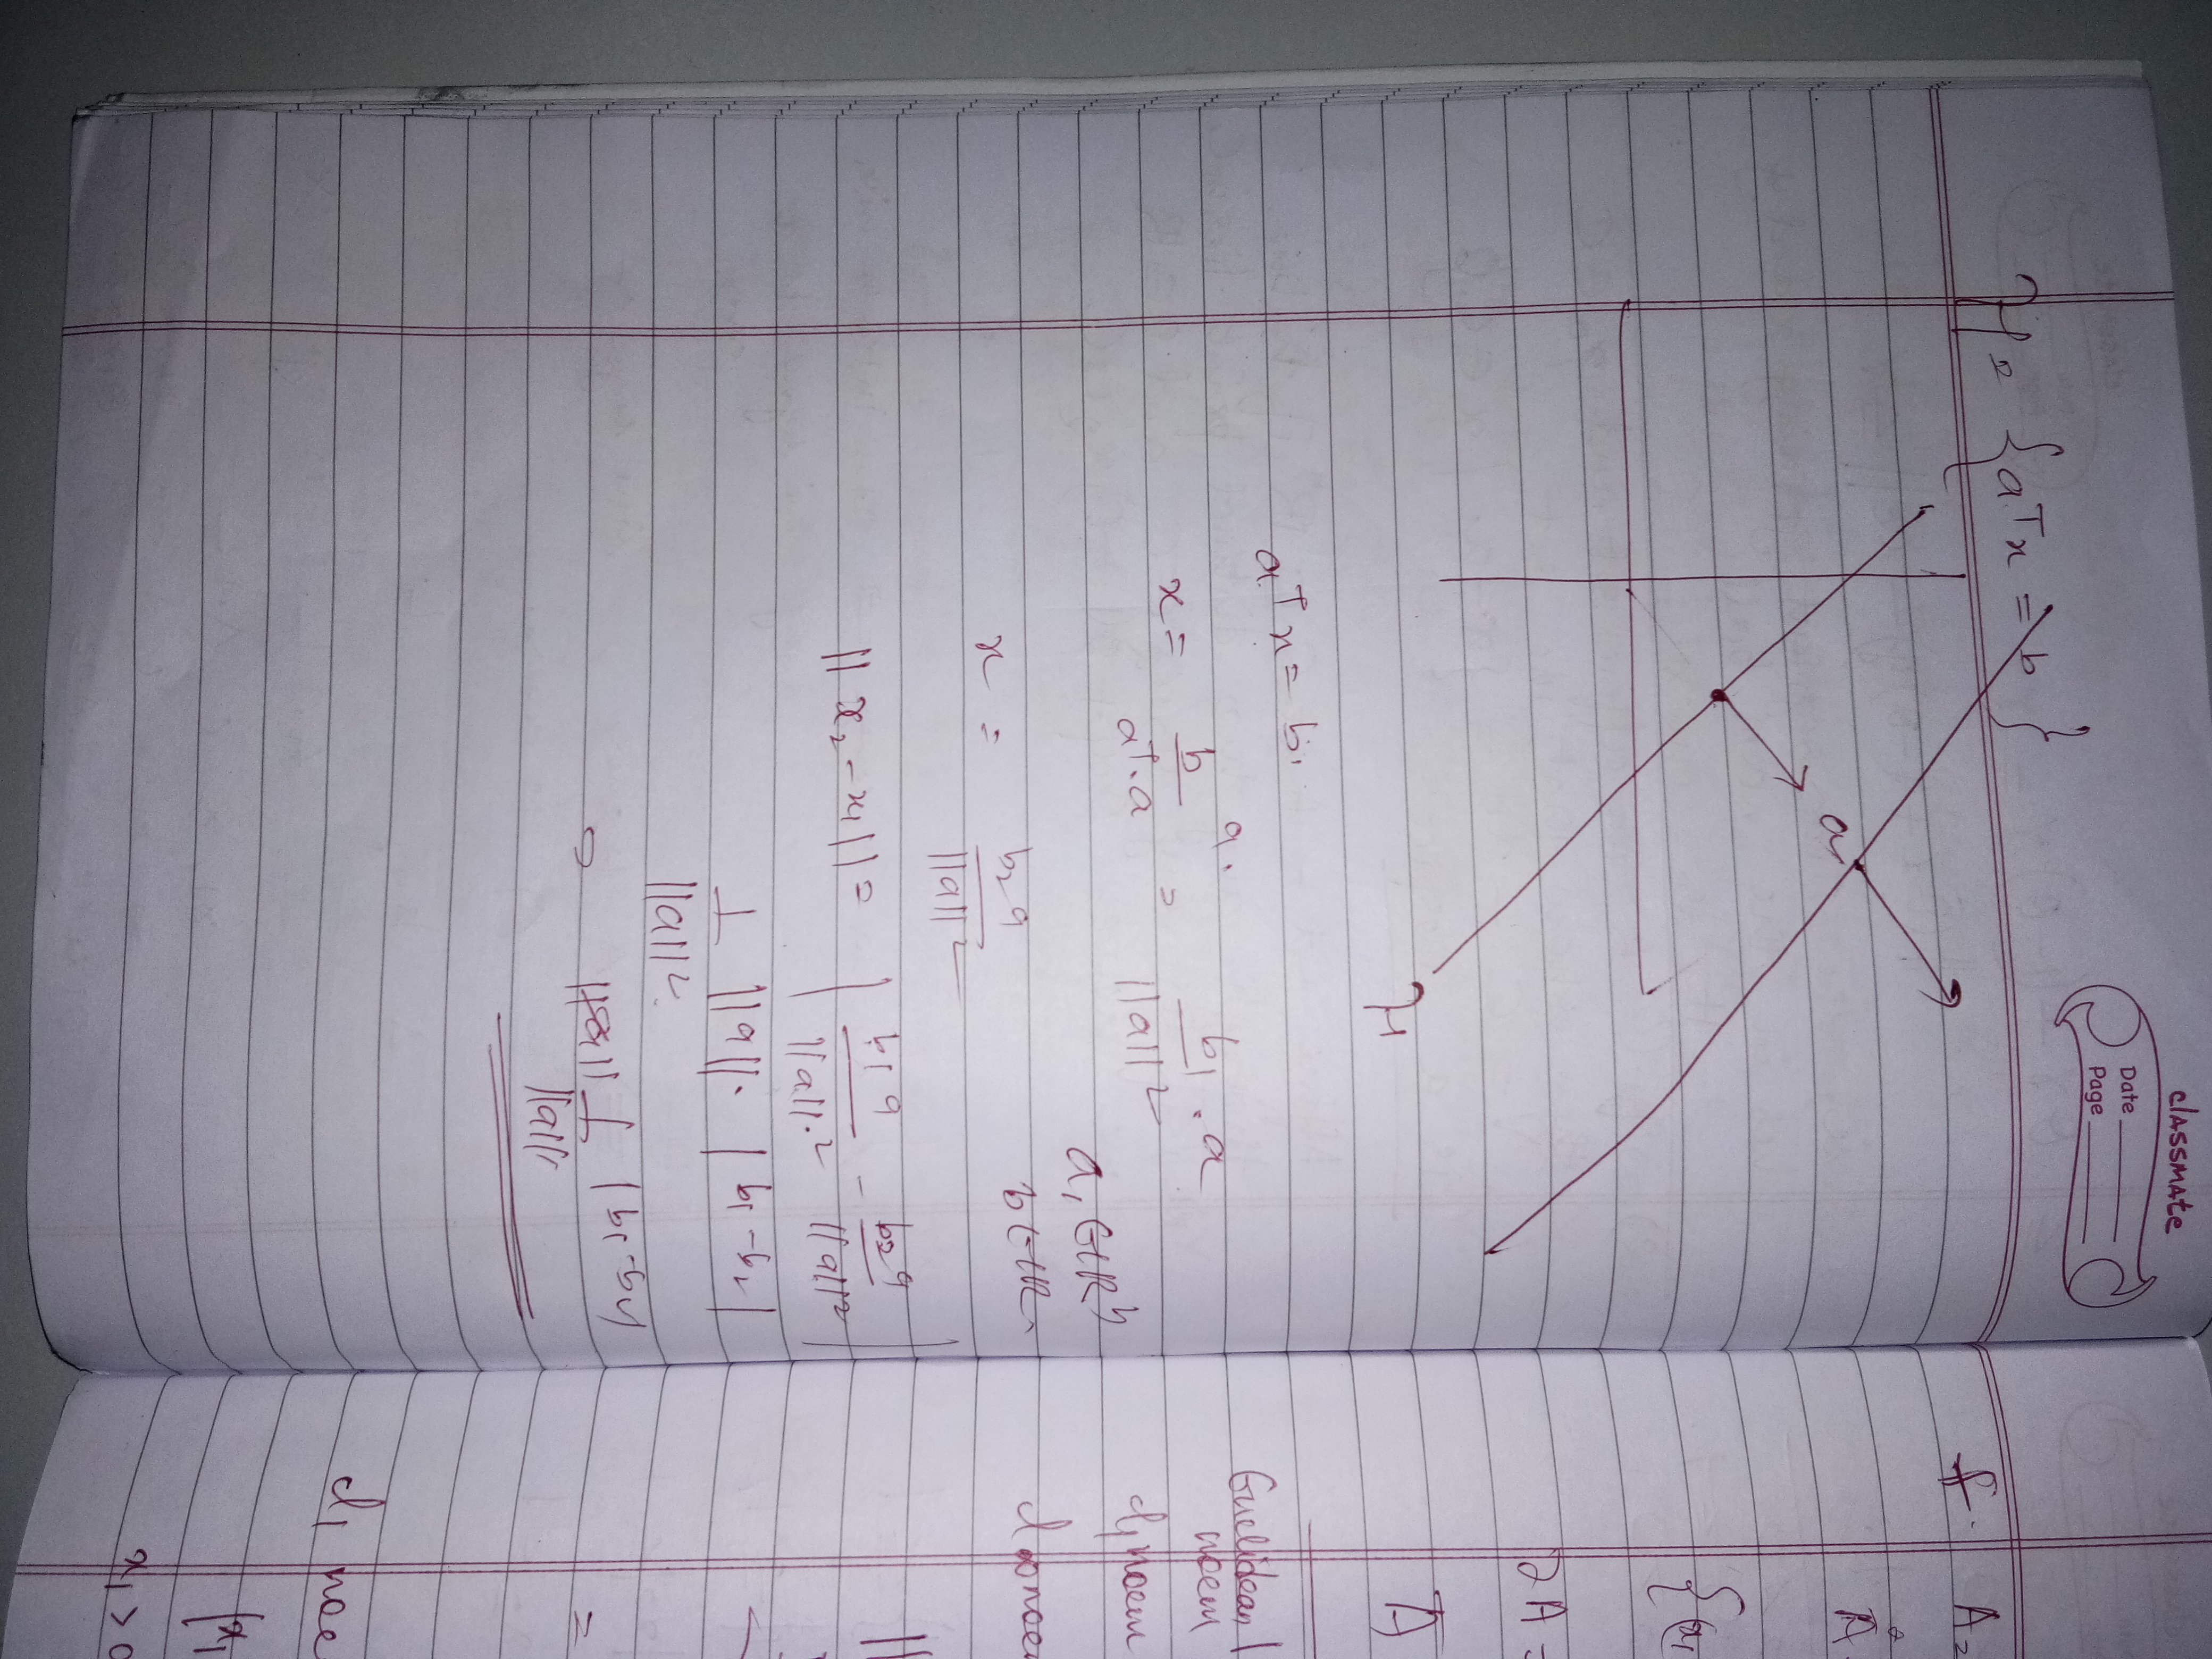 classmate
Date
Page
H = { aᵀx = b }
a
H
aᵀx = b₁
x = b / aᵀ.a a. = b₁ / ||a||² . a
a, ∈ ℝⁿ
b ∈ ℝ
x = b₂a / ||a||²
||x₂ - x₁|| = | b₁a / ||a||² - b₂a / ||a||² |
1 / ||a||² ||a||. |b₁ - b₂|
= 1 / ||a|| |b₁ - b₂|
f. A₂
∂A =
A̅
Euclidean
noem
l₁ noem
l∞ noem
=
l₁ noe
|x₁
x₁ > 0